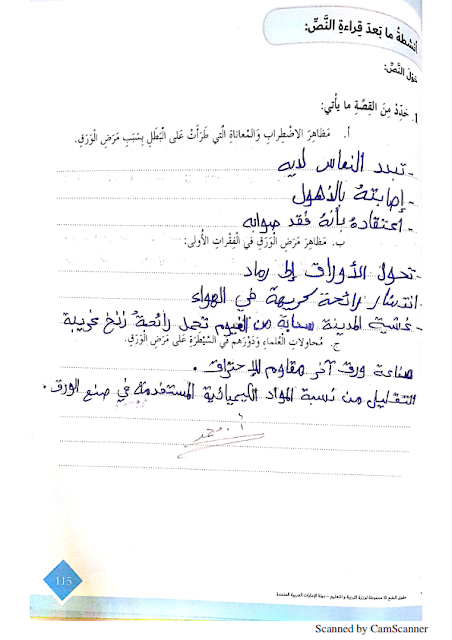 أنشطةُ ما بَعدَ قِراءةِ النَّصِّ:
حَوْلَ النَّصِّ:
1. حَدِّدْ مِنَ القِصَّةِ ما يَأْتي:
أ. مَظاهِرَ الاضْطِرابِ وَالمُعاناةِ الَّتي طَرَأَتْ عَلى البَطَلِ بِسَبَبِ مَرَضِ الْوَرَقِ.
- تبدد النعاس لديه
- إصابته بالذهول
- اعتقاده بأنه فقد صوابه
ب. مَظاهِرَ مَرَضِ الْوَرَقِ في الفِقْراتِ الأُولى:
- تحول الأوراق إلى رماد
- انتشار رائحة كريهة في الهواء
- غشية المدينة سحابة من الغيوم تحمل رائحة غريبة
ج. مُحاوَلاتِ العُلَماءِ وَدَوْرَهُمْ في السَّيْطَرَةِ عَلى مَرَضِ الْوَرَقِ.
صناعة ورق آخر مقاوم للإحتراق .
التقليل من نسبة المواد الكيميائية المستخدمة في صنع الورق .
115
حقوق الطبع © محفوظة لوزارة التربية والتعليم - دولة الإمارات العربية المتحدة
Scanned by CamScanner